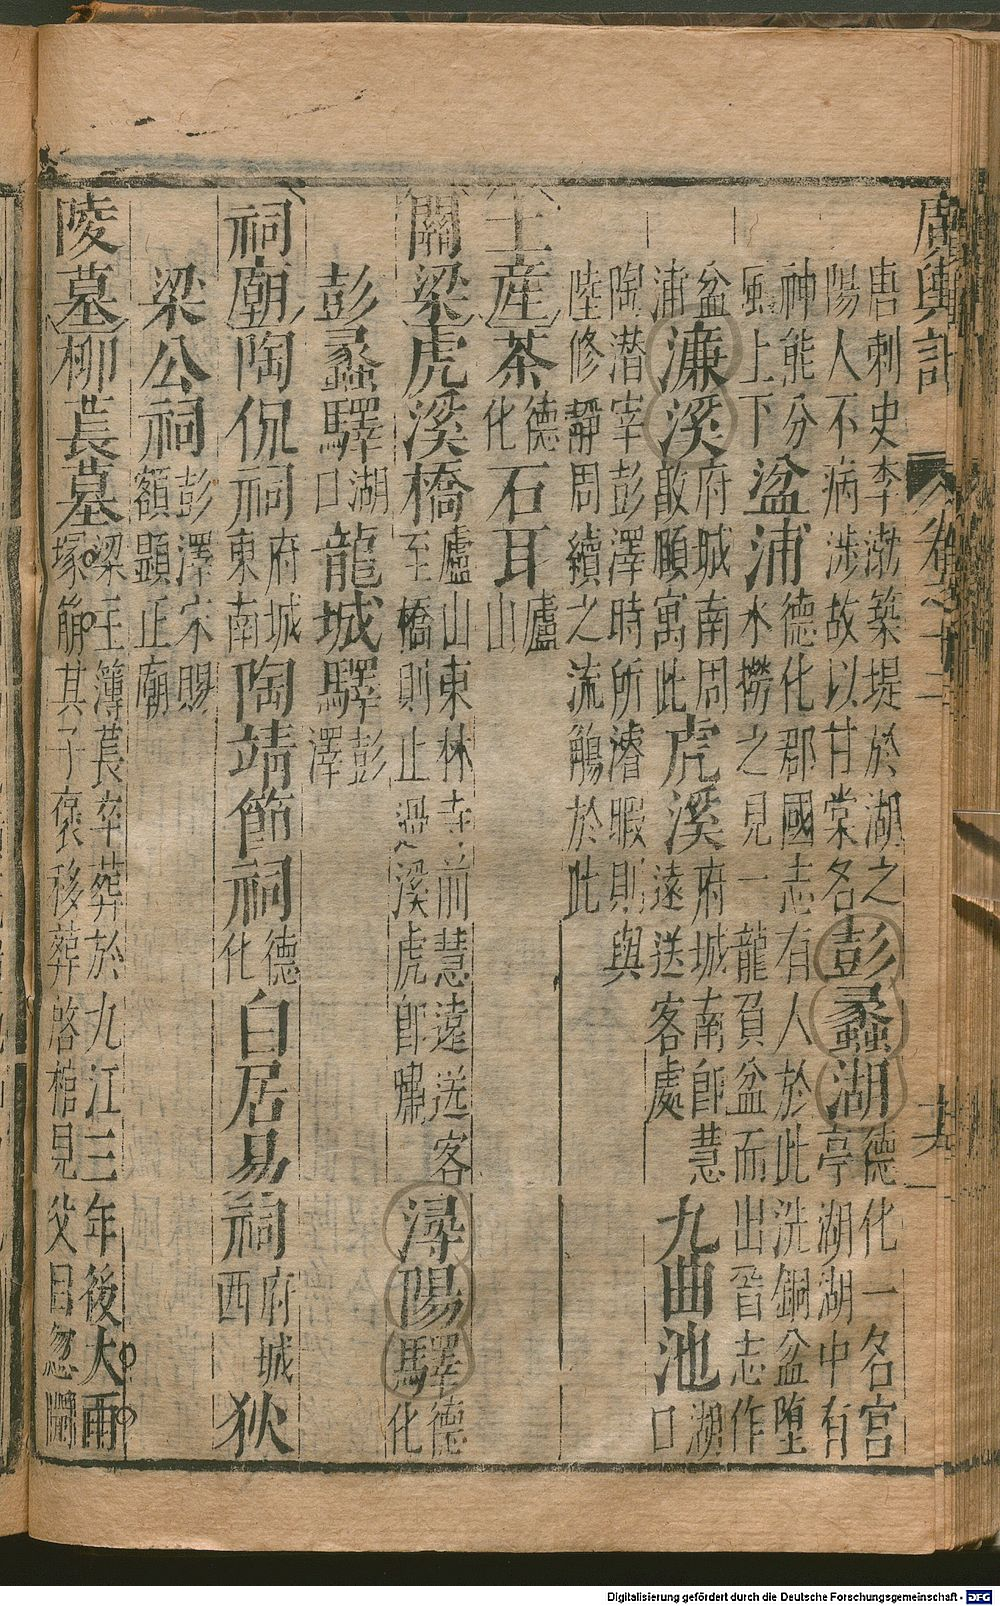 廣輿記 卷之十二
唐刺史李渤築堤於湖之
陽人不病涉故以甘棠名
彭蠡湖
德化一名宮
亭湖湖中有
神熊分
風上下
湓浦
德化郡國志有人於此洗銅盆墮
水撈之見一龍負盆而出晉志作
盆
浦
濂溪
府城南周
敦頤寓此
虎溪
府城南即慧
遠送客處
九曲池
湖
口
陶潛宰彭澤時所濬暇則與
陸修靜周續之流觴於此
土產
茶
德
化
石耳
廬
山
關梁
虎溪橋
廬山東林寺前慧遠送客
至橋則止過溪虎即嘯
潯陽驛
德
化
彭蠡驛
湖
口
龍城驛
彭
澤
祠廟
陶侃祠
府城
東南
陶靖節祠
德
化
白居易祠
府城
西
狄
梁公祠
彭澤宋賜
額顯正廟
陵墓
柳萇墓
梁主簿萇卒葬於九江三年後大雨
塚崩其子褒移葬啓棺見父目忽開
Digitalisierung gefördert durch die Deutsche Forschungsgemeinschaft - DFG